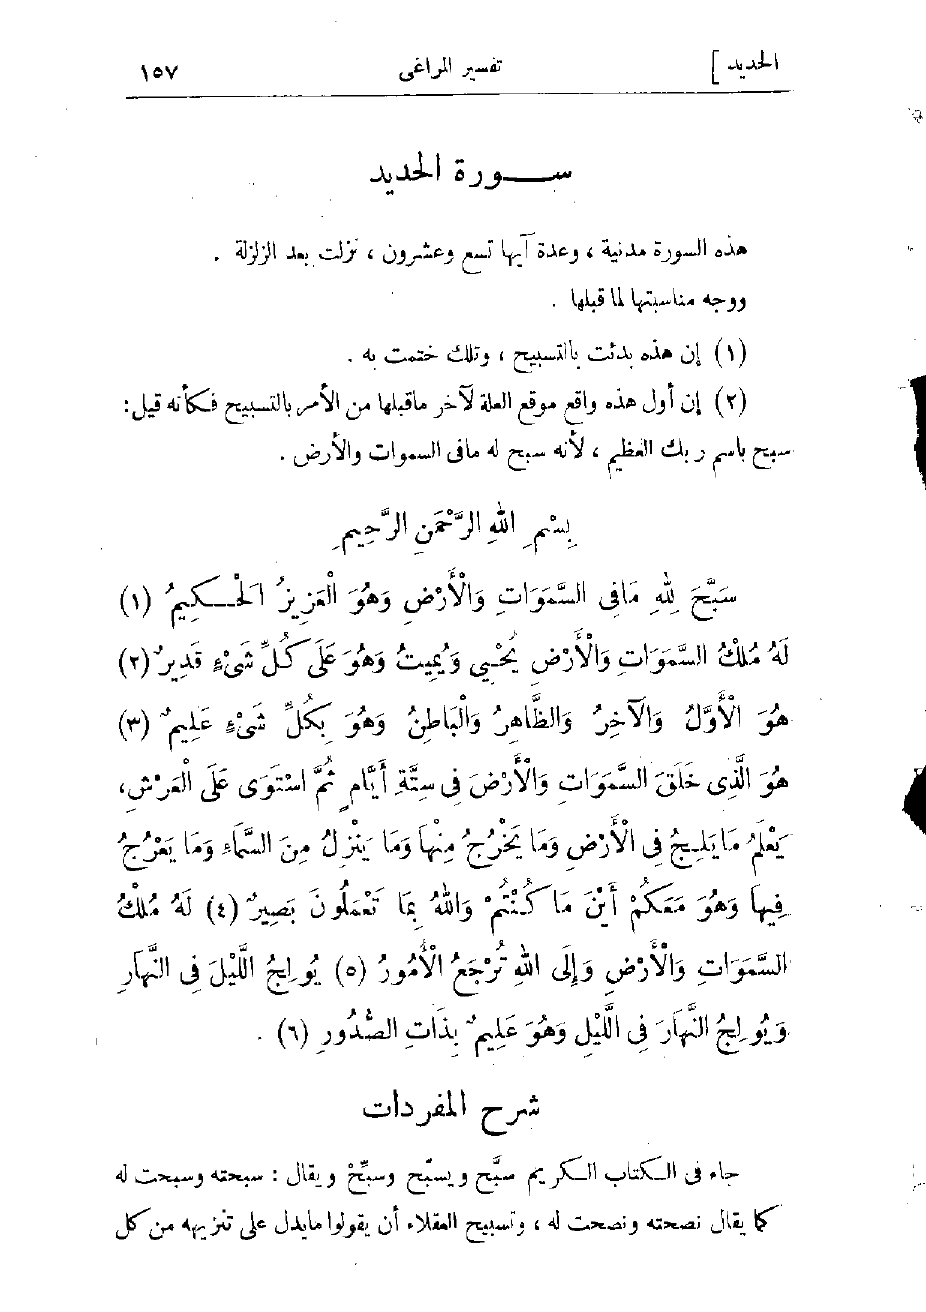 الحديد ] تفسير المراغى ١٥٧
ســـورة الحديد
هذه السورة مدنية ، وعدة آيها تسع وعشرون ، نزلت بعد الزلزلة .
ووجه مناسبتها لما قبلها .
(١) إن هذه بدئت بالتسبيح ، وتلك ختمت به .
(٢) إن أول هذه واقع موقع العلة لآخر ماقبلها من الأمر بالتسبيح فكأنه قيل :
سبح باسم ربك العظيم ، لأنه سبح له مافى السموات والأرض .
بِسْمِ اللهِ الرَّحْمَنِ الرَّحِيمِ
سَبَّحَ لِلهِ مَافِى السَّمَوَاتِ وَالْأَرْضِ وَهُوَ الْعَزِيزُ الْحَكِيمُ (١)
لَهُ مُلْكُ السَّمَوَاتِ وَالْأَرْضِ يُحْيِي وَيُمِيتُ وَهُوَ عَلَى كُلِّ شَىْءٍ قَدِيرٌ (٢)
هُوَ الْأَوَّلُ وَالْآخِرُ وَالظَّاهِرُ وَالْبَاطِنُ وَهُوَ بِكُلِّ شَىْءٍ عَلِيمٌ (٣)
هُوَ الَّذِى خَلَقَ السَّمَوَاتِ وَالْأَرْضَ فِى سِتَّةِ أَيَّامٍ ثُمَّ اسْتَوَى عَلَى الْعَرْشِ،
يَعْلَمُ مَا يَلِجُ فِى الْأَرْضِ وَمَا يَخْرُجُ مِنْهَا وَمَا يَنْزِلُ مِنَ السَّمَاءِ وَمَا يَعْرُجُ
فِيهَا وَهُوَ مَعَكُمْ أَيْنَ مَا كُنْتُمْ وَاللهُ بِمَا تَعْمَلُونَ بَصِيرٌ (٤) لَهُ مُلْكُ
السَّمَوَاتِ وَالْأَرْضِ وَإِلَى اللهِ تُرْجَعُ الْأُمُورُ (٥) يُولِجُ اللَّيْلَ فِى النَّهَارِ
وَيُولِجُ النَّهَارَ فِى اللَّيْلِ وَهُوَ عَلِيمٌ بِذَاتِ الصُّدُورِ (٦) .
شرح المفردات
جاء فى الكتاب الكريم سبَّح ويسبّح وسبِّحْ ويقال : سبحته وسبحت له
كما يقال نصحته ونصحت له ، وتسبيح العقلاء أن يقولوا مايدل على تنزيهه من كل